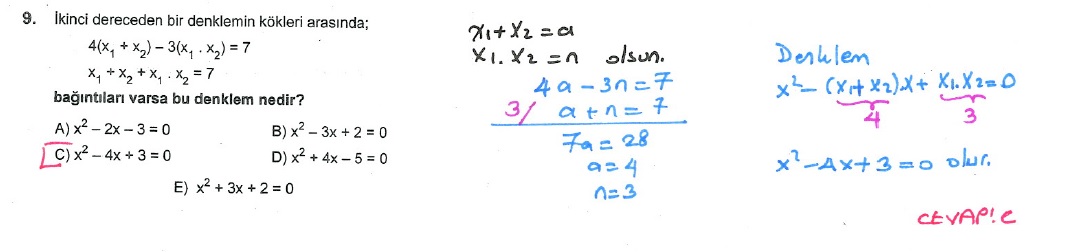 9. İkinci dereceden bir denklemin kökleri arasında;
4(x₁ + x₂) – 3(x₁ . x₂) = 7
x₁ + x₂ + x₁ . x₂ = 7
bağıntıları varsa bu denklem nedir?
A) x² – 2x – 3 = 0 B) x² – 3x + 2 = 0
C) x² – 4x + 3 = 0 D) x² + 4x – 5 = 0
E) x² + 3x + 2 = 0
x₁+x₂ = a
x₁.x₂ = n olsun.
4a – 3n = 7
3/ a + n = 7
7a = 28
a = 4
n = 3
Denklem
x² – (x₁+x₂).x + x₁.x₂ = 0
4 3
x² – 4x + 3 = 0 olur.
CEVAP: C